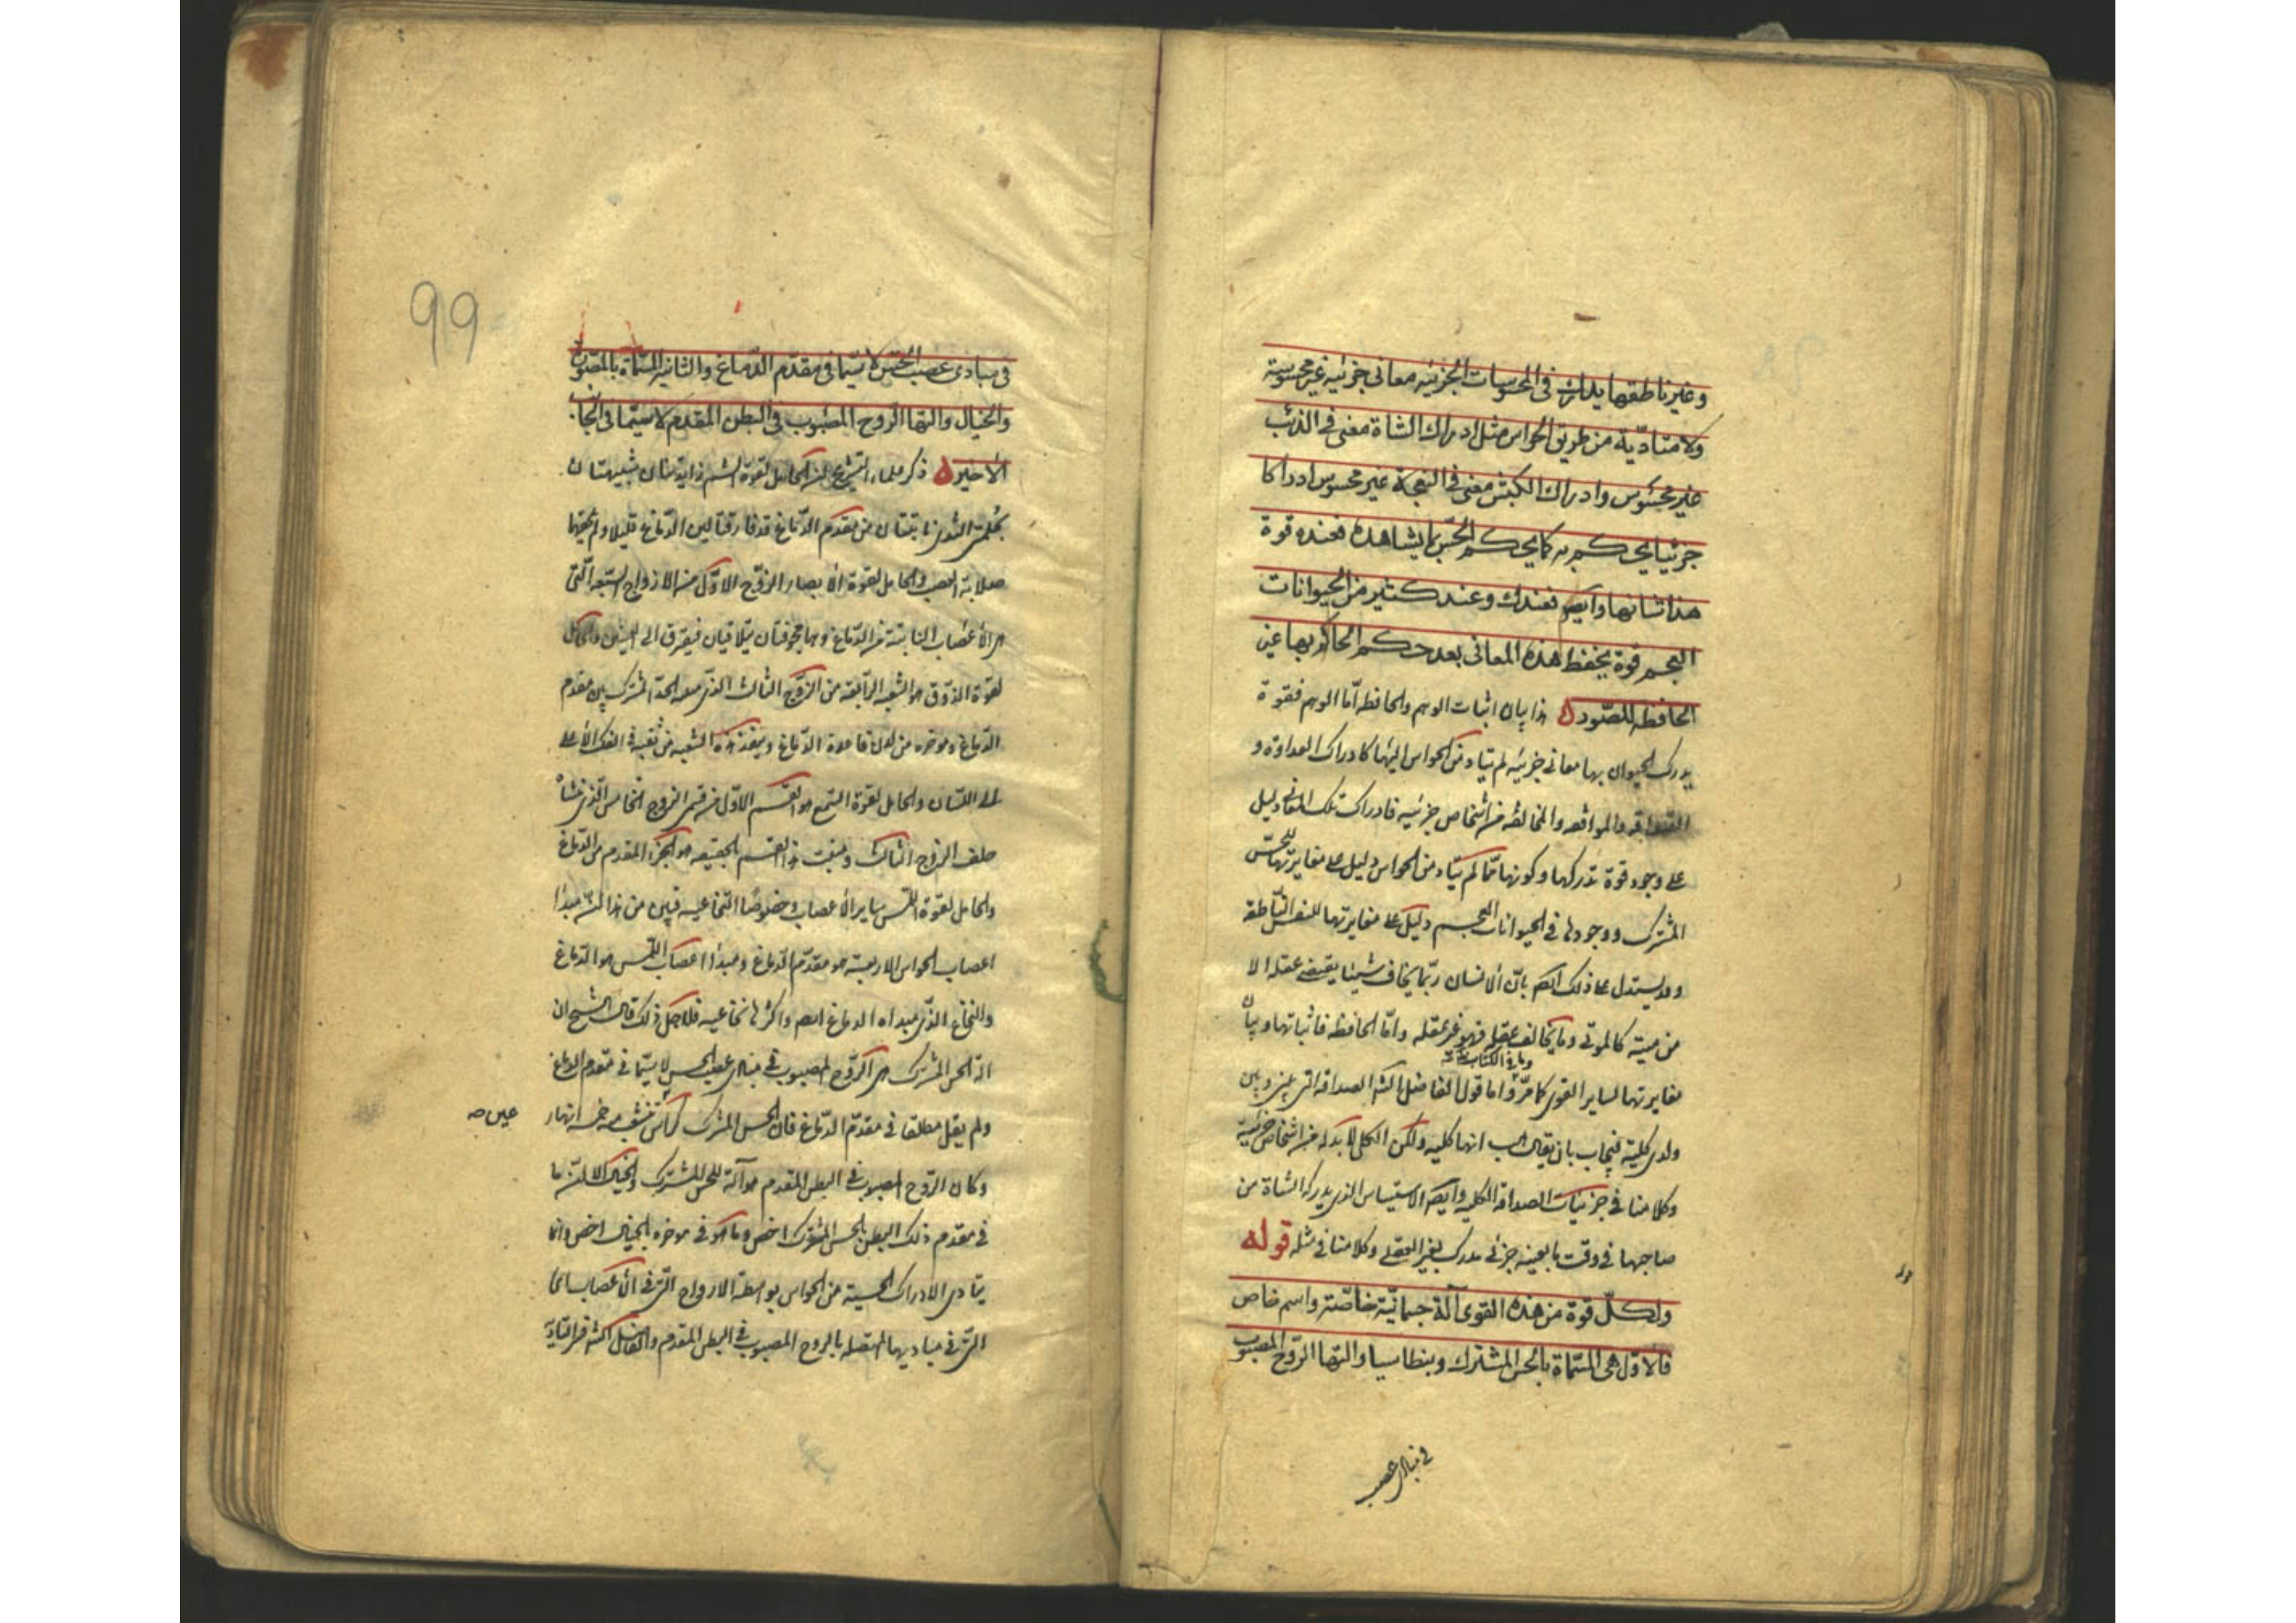 وغير ناطقها يدرك فى المحسوسات الجزئيه معانى جزئيه غير محسوسة
ولا متأدية من طريق الحواس مثل ادراك الشاة معنى فى الذئب
غير محسوس وادراك الكبش معنى فى النعجة غير محسوس ادراكا
جزئيا يحكم به كما يحكم الحس بما يشاهده فعنده قوة
هذا شانها وايضا فعندك وعند كثير من الحيوانات
العجم قوة يحفظ هذه المعانى بعد حكم الحاكم بها غير
الحافظه للصور ه هذا بيان اثبات الوهم والحافظه اما الوهم فقوة
يدرك الحيوان بها معانى جزئيه لم يتاد من الحواس اليها كادراك العداوة و
الصداقه والموافقه والمخالفه من اشخاص جزئيه فادراك تلك المعانى دليل
على وجود قوة تدركها وكونها مما لم يتاد من الحواس دليل على مغايرتها للحس
المشترك ووجودها فى الحيوانات العجم دليل على مغايرتها للنفس الناطقه
وقد يستدل على ذلك ايضا بان الانسان ربما يخاف شيئا يقتضى عقله الا
من منه كالموتى وما يخالف عقله فهو غير عقله واما الحافظه فاثباتها وبيان
مغايرتها لساير القوى كما مر واما قول الفاضل الصداقه التى بين وبين
وباقى الكتاب
ولدى كلية فيجاب بان يقال انها كليه ولكن الكلى لا بد له من اشخاص جزئية
وكلامنا فى جزئيات الصداقه الكليه وايضا الاستيناس الذى يدركه الشاة من
صاحبها فى وقت ما بعينه جزئى مدرك بغير العقل وكلامنا فى مثله قوله
ولكل قوة من هذه القوى آلة جسمانية خاصة واسم خاص
فالاول هى المسماة بالحس المشترك وبنطاسيا والتها الروح المصبوب
فى مبادى عصب
99
فى مبادى عصب الحس لا سيما فى مقدم الدماغ والثانيه المسماة بالمصورة
والخيال والتها الروح المصبوب فى البطن المقدم لا سيما فى الجانب
الاخير ه ذكر علماء التشريح ان الحامل لقوة الشم زايدتان شبيهتان
بحلمتى الثدى نابتتان من مقدم الدماغ قد فارقتا لين الدماغ قليلا ولم يلحقهما
صلابة العصب والحامل لقوة الابصار الزوج الاول من الازواج السبعه التى
هى الاعصاب النابتة من الدماغ وهما مجوفتان يتلاقيان فيفترق الى العينين والحامل
لقوة الذوق هو الشعبه الرابعه من الزوج الثالث الذى منه الحد المشترك بين مقدم
الدماغ وموخره من لدن قاعدة الدماغ وينفذ هذه الشعبه من ثقبه فى الفك الاعلى
الى اللسان والحامل لقوة السمع هو القسم الاول من قسمى الزوج الخامس الذى منشاه
خلف الزوج الثالث ومنبت هذا القسم بالحقيقه هو الجزء المقدم من الدماغ
والحامل لقوة اللمس ساير الاعصاب وخصوصا النخاعيه فتبين من هذا ان مبدا
اعصاب الحواس الاربعة هو مقدم الدماغ ومبدا اعصاب اللمس هو الدماغ
والنخاع الذى مبداه الدماغ ايضا واكثرها نخاعيه فلاجل ذلك قال الشيخ ان
الة الحس المشترك هى الروح المصبوب فى مبادى عصب الحس لا سيما فى مقدم الدماغ
ولم يقل مطلقا فى مقدم الدماغ فان الحس المشترك كراس عين تنشعب منه خمسة انهار
وكان الروح المصبوب فى البطن المقدم هو آلة للحس المشترك والخيال الا ان ما
فى مقدم ذلك البطن بالحس المشترك اخص وما هو فى موخره بالخيال اخص وانما
يتادى الادراك الحسية من الحواس بواسطة الارواح التى فى الاعصاب الى
التى فى مباديها المتصله بالروح المصبوب فى البطن المقدم والفاضل